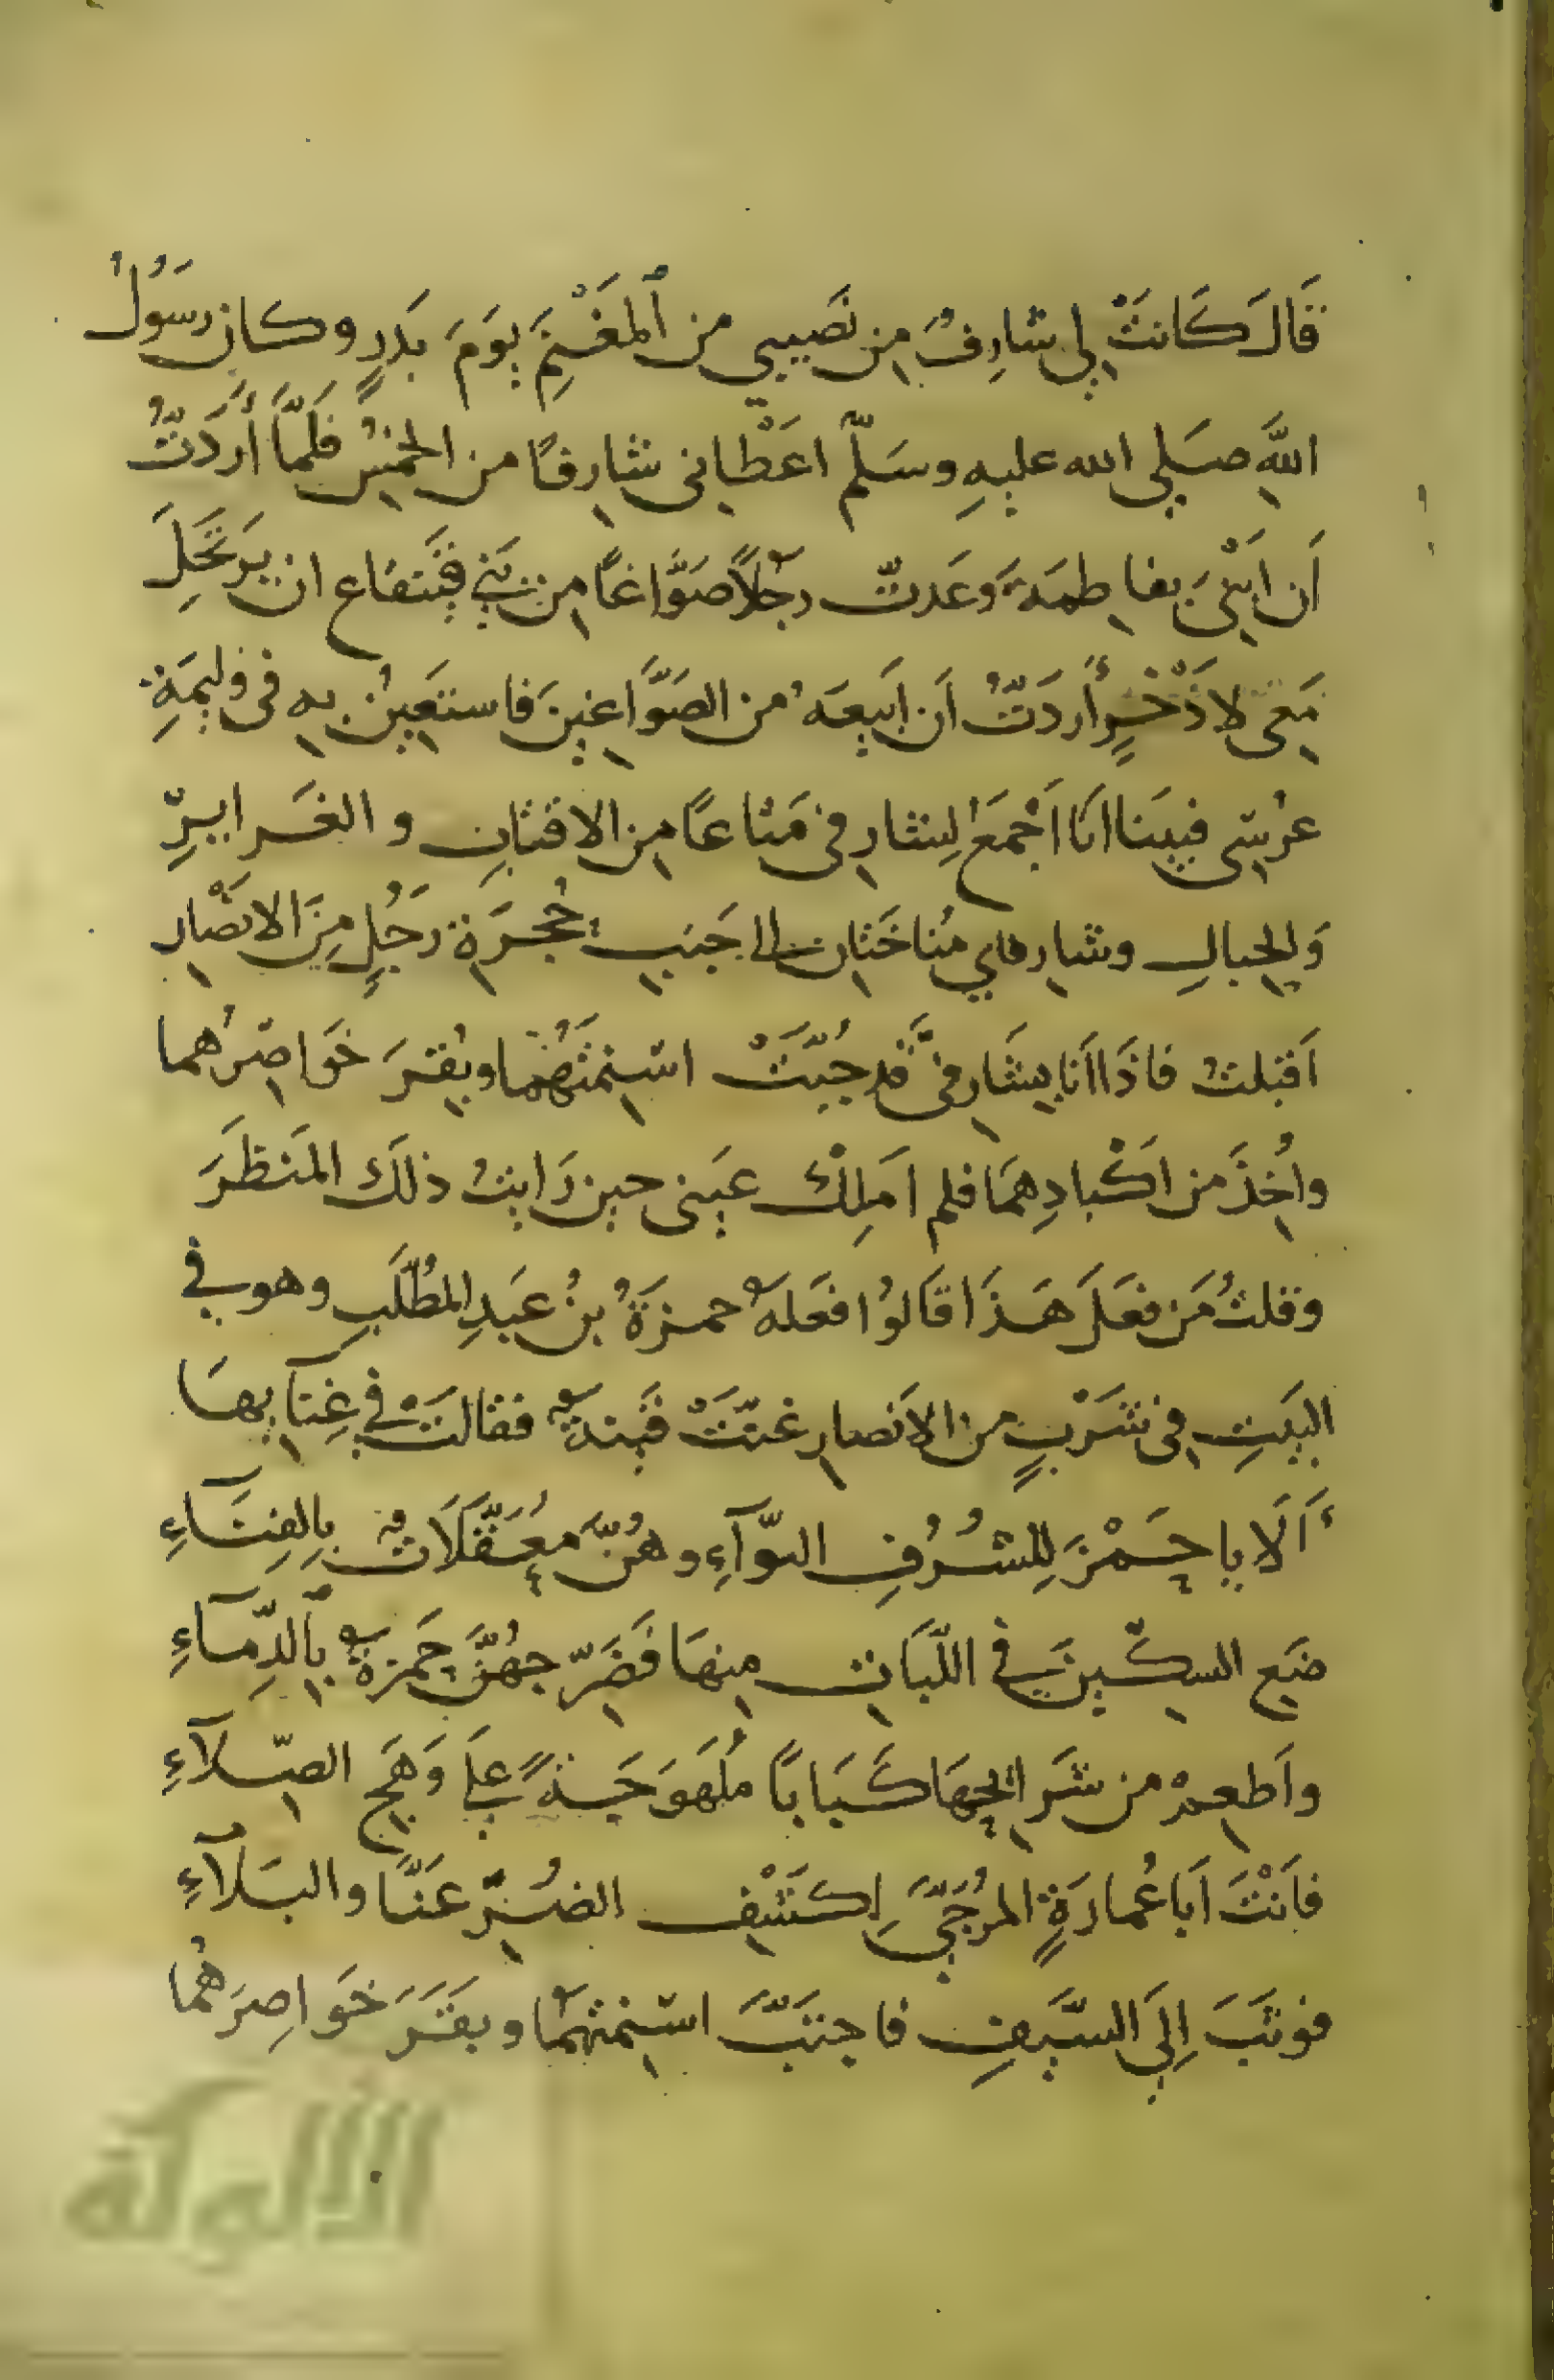 قَالَ كَانَتْ لي شارِفٌ من نَصيبي من اَلمَغْنَمِ يَومَ بَدرٍ وكان رسَوُلُ
اللهِ صَلي الله عليهِ وسَلّم اعَطْاني شارِفًا من الخمُسْ فلَمَّا أرَدَتُّ
اَن اَبْنيَ بفاطمَةَ وَعَدتّ رجُلاً صَوَّاغًا من بَني قَينَقاع ان يَرتَحَلِ
مَعي لاذْخِرٍ أرَدَتُّ اَن اَبيعَهُ من الصَوَّاغينَ فاستعَينُ به في وليمَةِ
عرُسي فبَينا انَا اَجْمَعُ لِشارفي مَتاعًا من الاقتابِ والغَرايرِ
وَالحِبالِ وشارفاي مُناخَتان الى جَنبِ حُجرَةِ رَجُلٍ مِنَ الانصَار
اَقبَلتُ فاذَا اَنا بشَارفيَّ قد جُبّتَ اسنمتَهُما وبُقرَ خَواصرُهما
واُخِذَ من اكَبادِهمَا فلم اَملِكْ عَيني حين رَايتُ ذلَك المَنظَرَ
وقلتُ مَن فعَلَ هَذَا قَالوُا فعَلَهُ حمزَةُ بنُ عَبدِ المطُلّبِ وهو في
البَيتِ في شَرْبٍ من الانَصارِ غنّتَهْ قَينةٌ فقَالتَ في غِنآيهَا
أَلَا يا حَمْزَ للِشُرُفِ النّوآءِ وهُنّ معُقَّلَاتٌ بِالفِنَآءِ
ضَعِ السكّينَ في اللّبَاتِ منهَا فَضَرّجهُنَّ حَمزةُ بِاَلدِّمآءِ
واَطعمْ من شَرايحِهَا كَبَابًا مُلَهوَجَةً علَى وَهَجِ الصّلآءِ
فاَنْتَ اَبا عُمارَةٍ المرُجَّي لِكشَفْ الضُرّ عَنّا والبَلَآءِ
فوثَبَ اِلَى السّيفِ فاجتَبَّ اسنمتهُمَا وبقَرَ خَواصِرَهُما
الألوكة